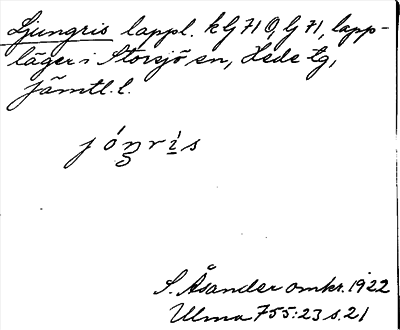 Ljungris lappl. k G 71 Ö, G 71, lapp-
läger i Storsjö sn, Hede tg,
Jämtl. l.
jóŋris
S. Åsander omkr. 1922
Ulma 755:23 s. 21